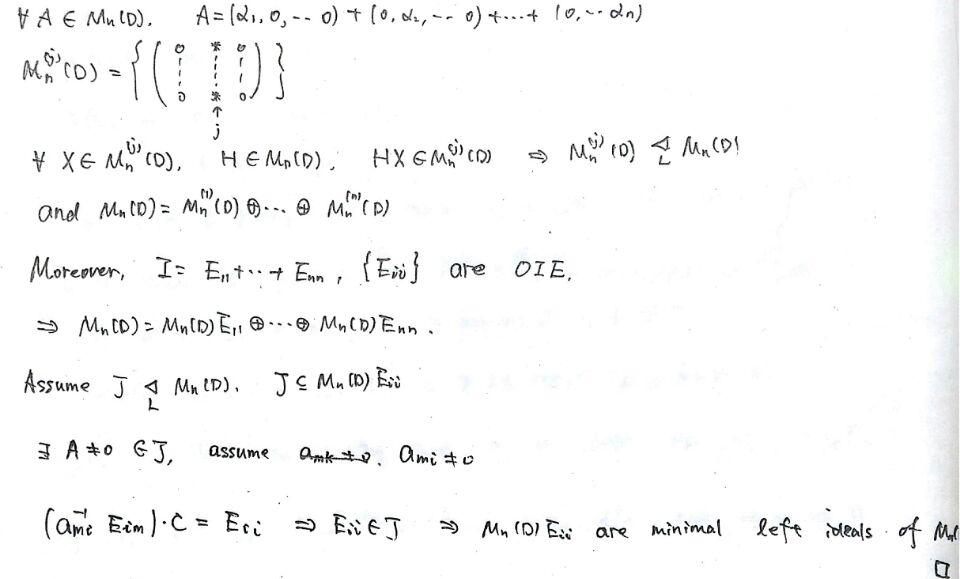 ∀ A ∈ Mn(D). A = (α1, 0, -- 0) + (0, α2, -- 0) + ... + (0, -- αn)
Mn^(j)(D) = { ( 0 * 0 ¦ ¦ ¦ 0 * 0 ) }
↑
j
∀ X ∈ Mn^(j)(D), H ∈ Mn(D), HX ∈ Mn^(j)(D) ⇒ Mn^(j)(D) ⊲_L Mn(D)
and Mn(D) = Mn^(1)(D) ⊕ ... ⊕ Mn^(n)(D)
Moreover, I = E11 + ... + Enn, {Eii} are OIE.
⇒ Mn(D) = Mn(D)E11 ⊕ ... ⊕ Mn(D)Enn.
Assume J ⊲_L Mn(D). J ⊆ Mn(D) Eii
∃ A ≠ 0 ∈ J, assume amk ≠ 0. ami ≠ 0
(ami^-1 Eim)·C = Eii ⇒ Eii ∈ J ⇒ Mn(D)Eii are minimal left ideals of Mn(
□